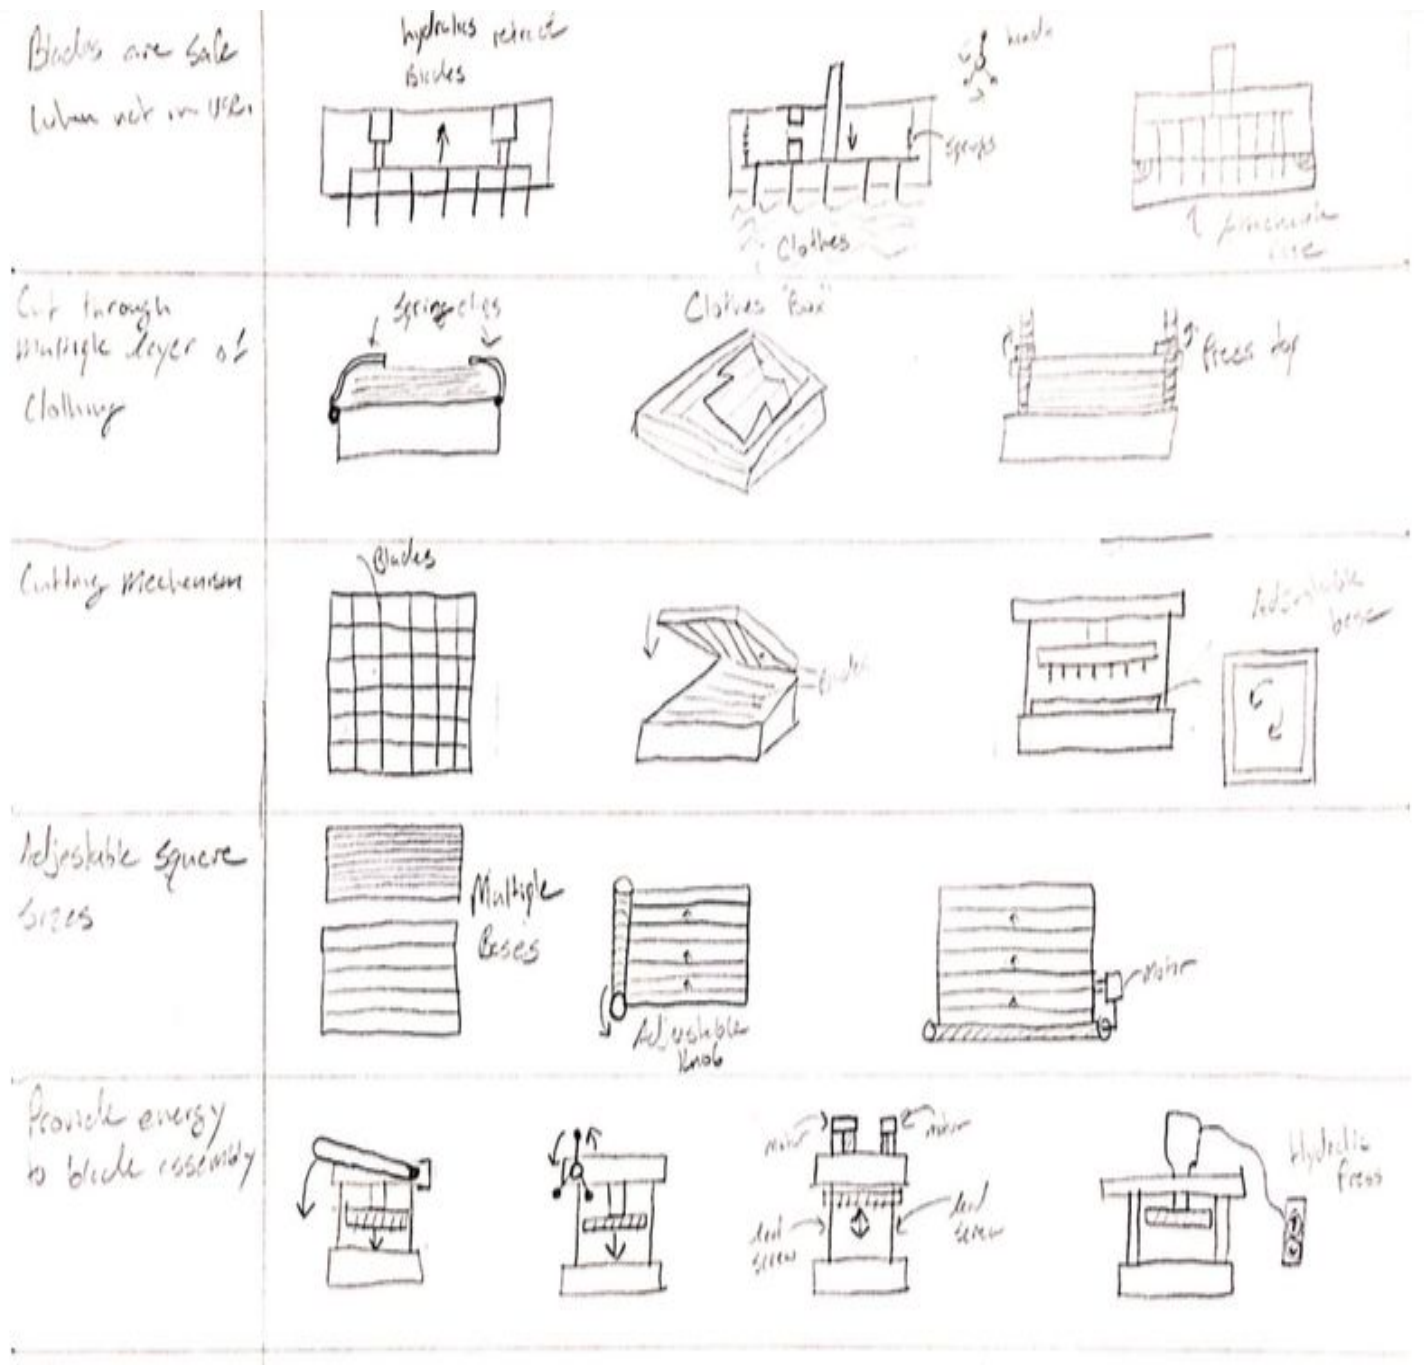 Blades are safe
when not in use.
hydraulics retract
Blades
handle
springs
Clothes
Cut through
multiple layer of
Clothing
Spring clips
Clothes "Box"
Press top
Cutting mechanism
Blades
Blades
Adjustable
base
Adjestable square
sizes
Multiple
Bases
Adjustable
Knob
motor
Provide energy
to blade assembly
motor
motor
lead
screw
lead
screw
Hydralic
Press